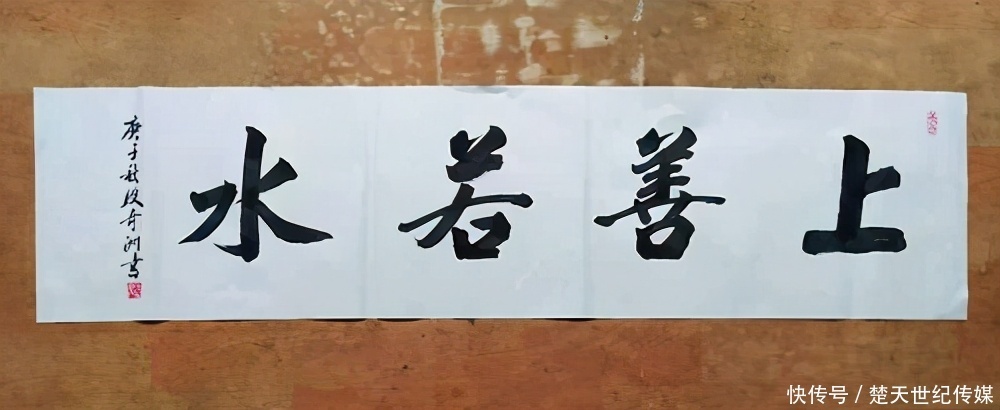 上善若水
庚子秋段奇洲书
快传号/楚天世纪传媒